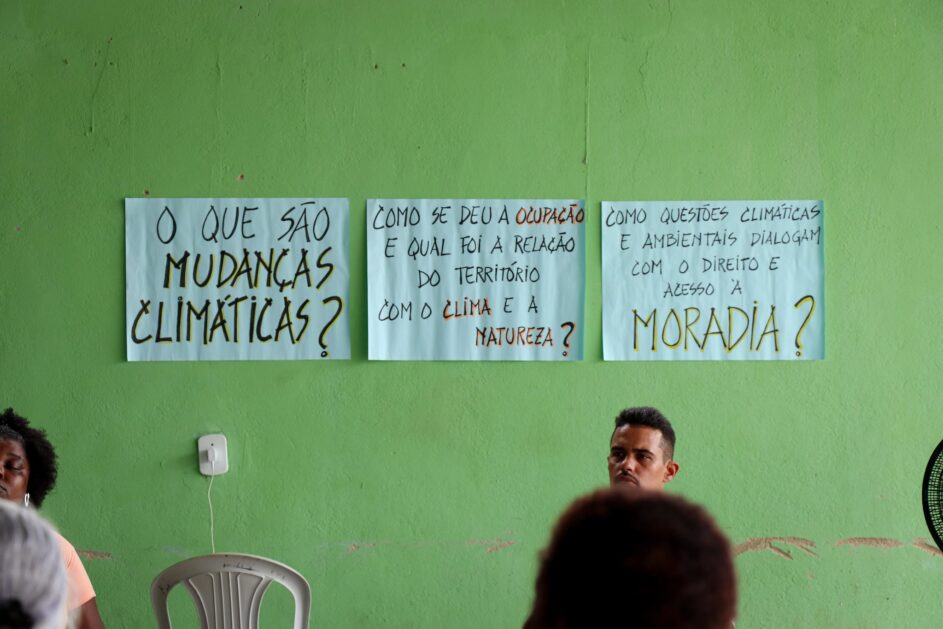 O QUE SÃO
MUDANÇAS
CLIMÁTICAS?
COMO SE DEU A OCUPAÇÃO
E QUAL FOI A RELAÇÃO
DO TERRITÓRIO
COM O CLIMA E A
NATUREZA?
COMO QUESTÕES CLIMÁTICAS
E AMBIENTAIS DIALOGAM
COM O DIREITO E
ACESSO À
MORADIA?